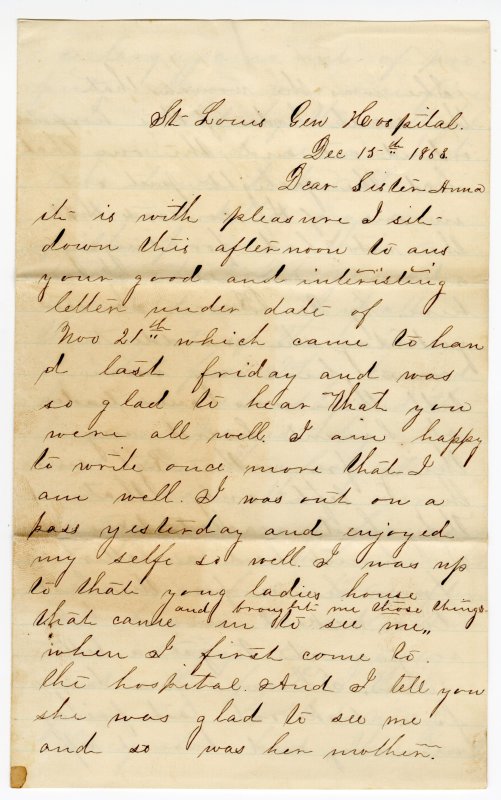 St Louis Gen Hospital.
Dec 15th 1863
Dear Sister Anna
it is with pleasure I sit
down this afternoon to ans
your good and intiristing
letter under date of
Nov 21th which came to han
d last friday and was
so glad to hear that you
were all well, I am happy
to write once more that I
am well. I was out on a
pass yesterday and enjoyed
my selfe so well. I was up
to that young ladies house
that came in to see me,, and brought me those things
when I first come to.
the hospital. And I tell you
she was glad to see me
and so was her mother.